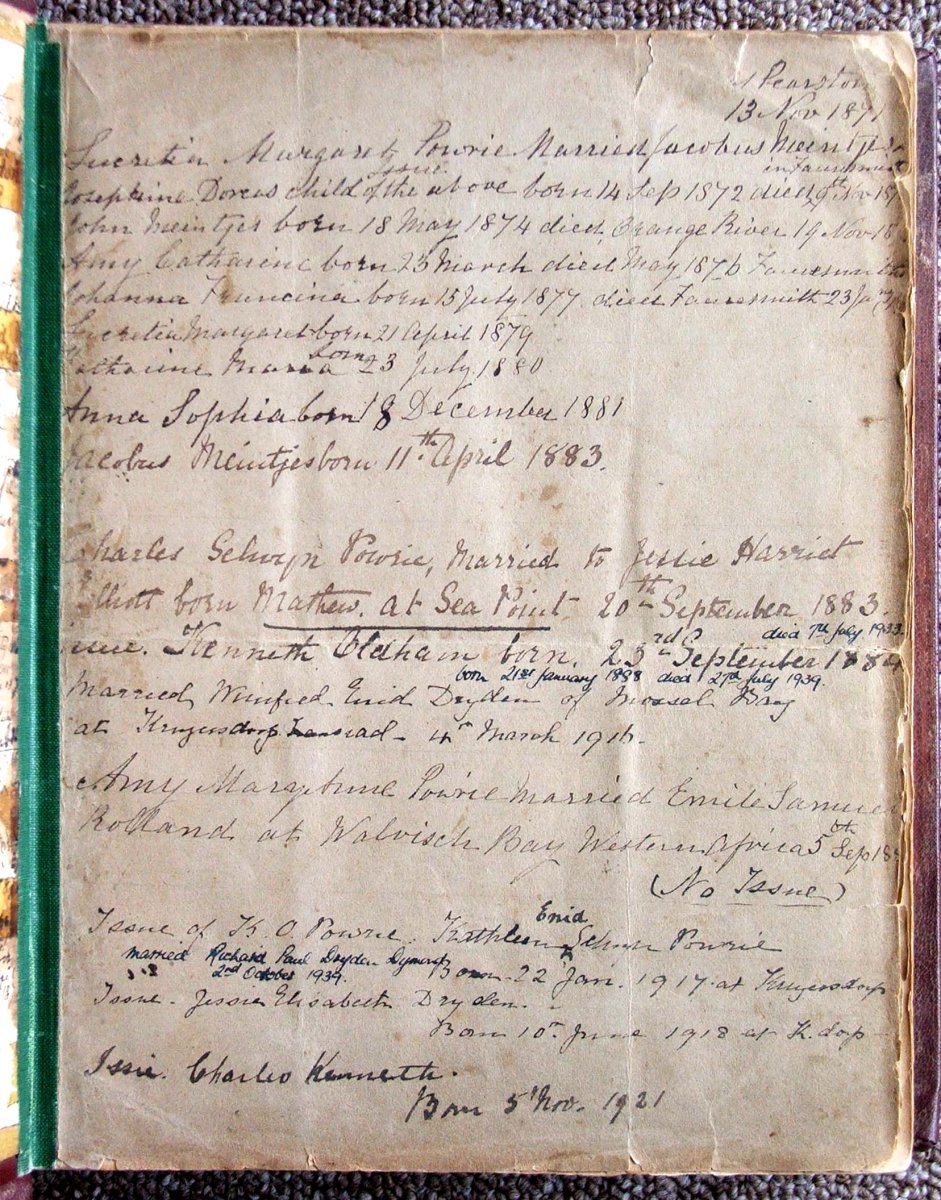 Pearston
13 Nov 1871
Lucretia Margaret Powrie Married Jacobus Meintjes
Issue. in Fauresmith
Josephine Dorcas child of the above born 14 Sep 1872 died 9th Nov 187
John Meintjes born 18 May 1874 died, Orange River 19 Nov 18
Amy Catharine born 23 March died May 1876 Fauresmith
Johanna Francina born 15 July 1877 died Fauresmith 23 Ja
Lucretia Margaret born 21 April 1879
Catharine Maria born 23 July 1880
Anna Sophia born 18 December 1881
Jacobus Meintjes born 11th April 1883.
Charles Selwyn Powrie, Married to Jessie Harriet
Elliott born Mathew. at Sea Point 20th September 1883.
died 7th July 1933.
Issue. Kenneth Oldham born. 23rd September 1884
born 21st January 1888 died 27th July 1939.
Married Winifred Enid Dryden of Mossel Bay
at Krugersdorp 4th March 1916.
Amy Marytune Powrie Married Emile Samuel
Rolland at Walvisch Bay Western Africa 5th Sep 188
(No Issue)
Issue of K. O. Powrie. Kathleen Enid Selwyn Powrie
married Richard Paul Dryden Dymond
2nd October 1939.
Born 22 Jan. 1917 at Krugersdorp
Issue. Jessie Elisabeth Dryden.
Born 10th June 1918 at K.dop
Issie. Charles Kenneth.
Born 5 Nov. 1921